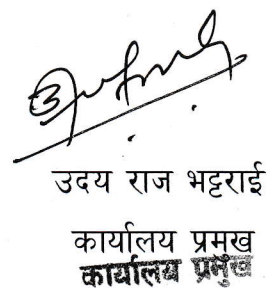 उदय राज भट्टराई
कार्यालय प्रमुख
कार्यालय प्रमुख